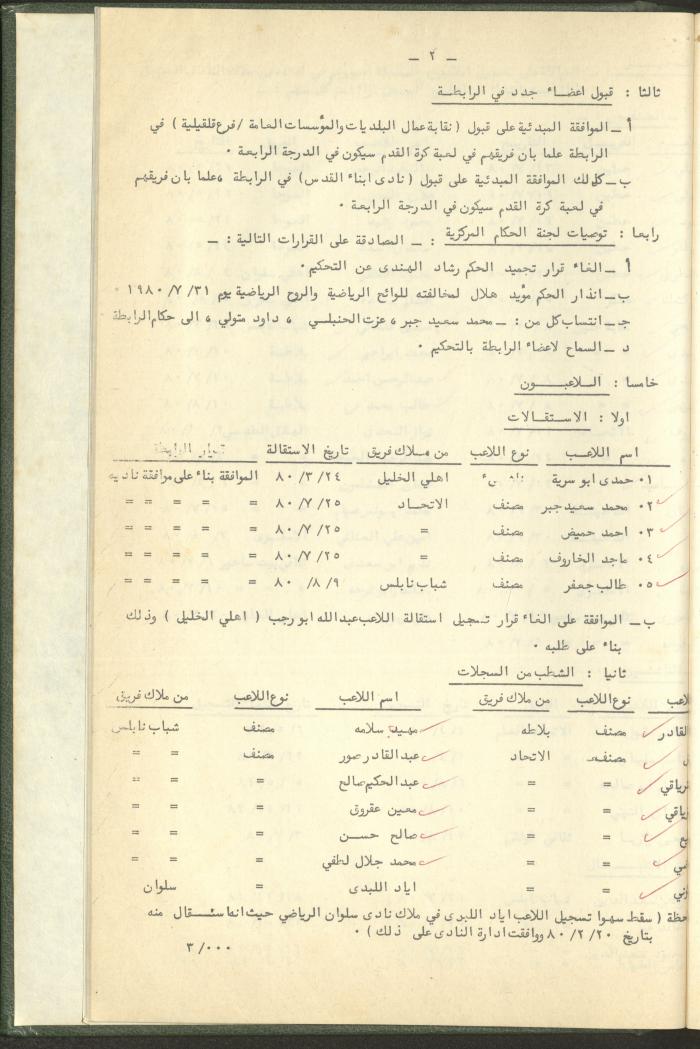 ـ ٢ ـ
ثالثا : قبول اعضاء جدد في الرابطة
أ ـ الموافقة المبدئية على قبول ( نقابة عمال البلديات والمؤسسات العامة / فرع قلقيلية ) في
الرابطة علما بان فريقهم في لعبة كرة القدم سيكون في الدرجة الرابعة .
ب ـ كذلك الموافقة المبدئية على قبول ( نادى ابناء القدس ) في الرابطة ، علما بان فريقهم
في لعبة كرة القدم سيكون في الدرجة الرابعة .
رابعا : توصيات لجنة الحكام المركزية : ـ المصادقة على القرارات التالية : ـ
أ ـ الغاء قرار تجميد الحكم رشاد الهندى عن التحكيم .
ب ـ انذار الحكم مؤيد هلال لمخالفته للوائح الرياضية والروح الرياضية يوم ٣١/ ٧/ ١٩٨٠ .
جـ ـ انتساب كل من : ـ محمد سعيد جبر ، عزت الحنبلسي ، داود متولي ، الى حكام الرابطة
د ـ السماح لاعضاء الرابطة بالتحكيم .
خامسا : اللاعبـــون
اولا : الاستقالات
اسم اللاعب نوع اللاعب من ملاك فريق تاريخ الاستقالة قرار الرابطة
٠١ حمدى ابو سرية ناشيء اهلي الخليل ٢٤/ ٣/ ٨٠ الموافقة بناء على موافقة ناديه
٠٢ محمد سعيد جبر مصنف الاتحاد ٢٥/ ٧/ ٨٠ = = = = =
٠٣ احمد حميض مصنف = ٢٥/ ٧/ ٨٠ = = = = =
٠٤ ماجد الخاروف مصنف = ٢٥/ ٧/ ٨٠ = = = = =
٠٥ طالب جعفر مصنف شباب نابلس ٩/ ٨/ ٨٠ = = = = =
ب ـ الموافقة على الغاء قرار تسجيل استقالة اللاعب عبدالله ابو رجب ( اهلي الخليل ) وذلك
بناء على طلبه .
ثانيا : الشطب من السجلات
لاعب نوع اللاعب من ملاك فريق اسم اللاعب نوع اللاعب من ملاك فريق
القادر مصنف بلاطه سلامه مصنف شباب نابلس
ل مصنف الاتحاد عبد القادر صور مصنف = =
رياقي = = عبد الحكيم صالح = = =
ياقي = = معين عقروق = = =
يع = = صالح حسن = = =
مي = = محمد جلال لطفي = = =
وني = = اياد اللبدى = سلوان
حظة ( سقط سهوا تسجيل اللاعب اياد اللبدى في ملاك نادى سلوان الرياضي حيث انه استقال منه
بتاريخ ٢٠/ ٢/ ٨٠ ووافقت ادارة النادى على ذلك ) .
٣/٠٠٠